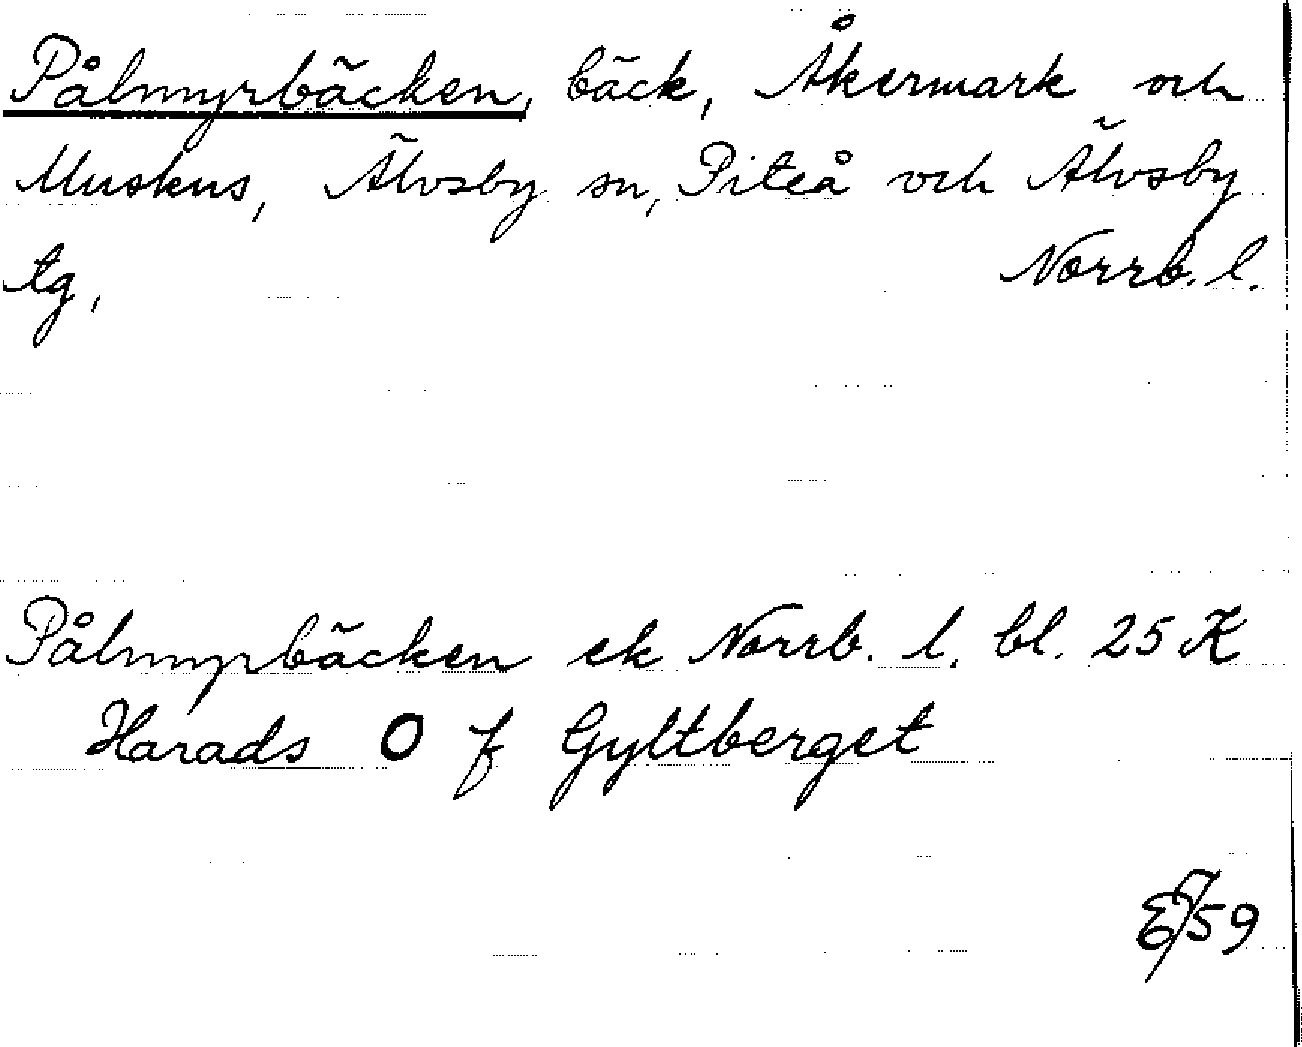 Pålmyrbäcken, bäck, Åkermark och
Muskus, Älvsby sn, Piteå och Älvsby
tg, Norrb. l.
Pålmyrbäcken ek Norrb. l. bl. 25 K
Harads O f Gyltberget
/59